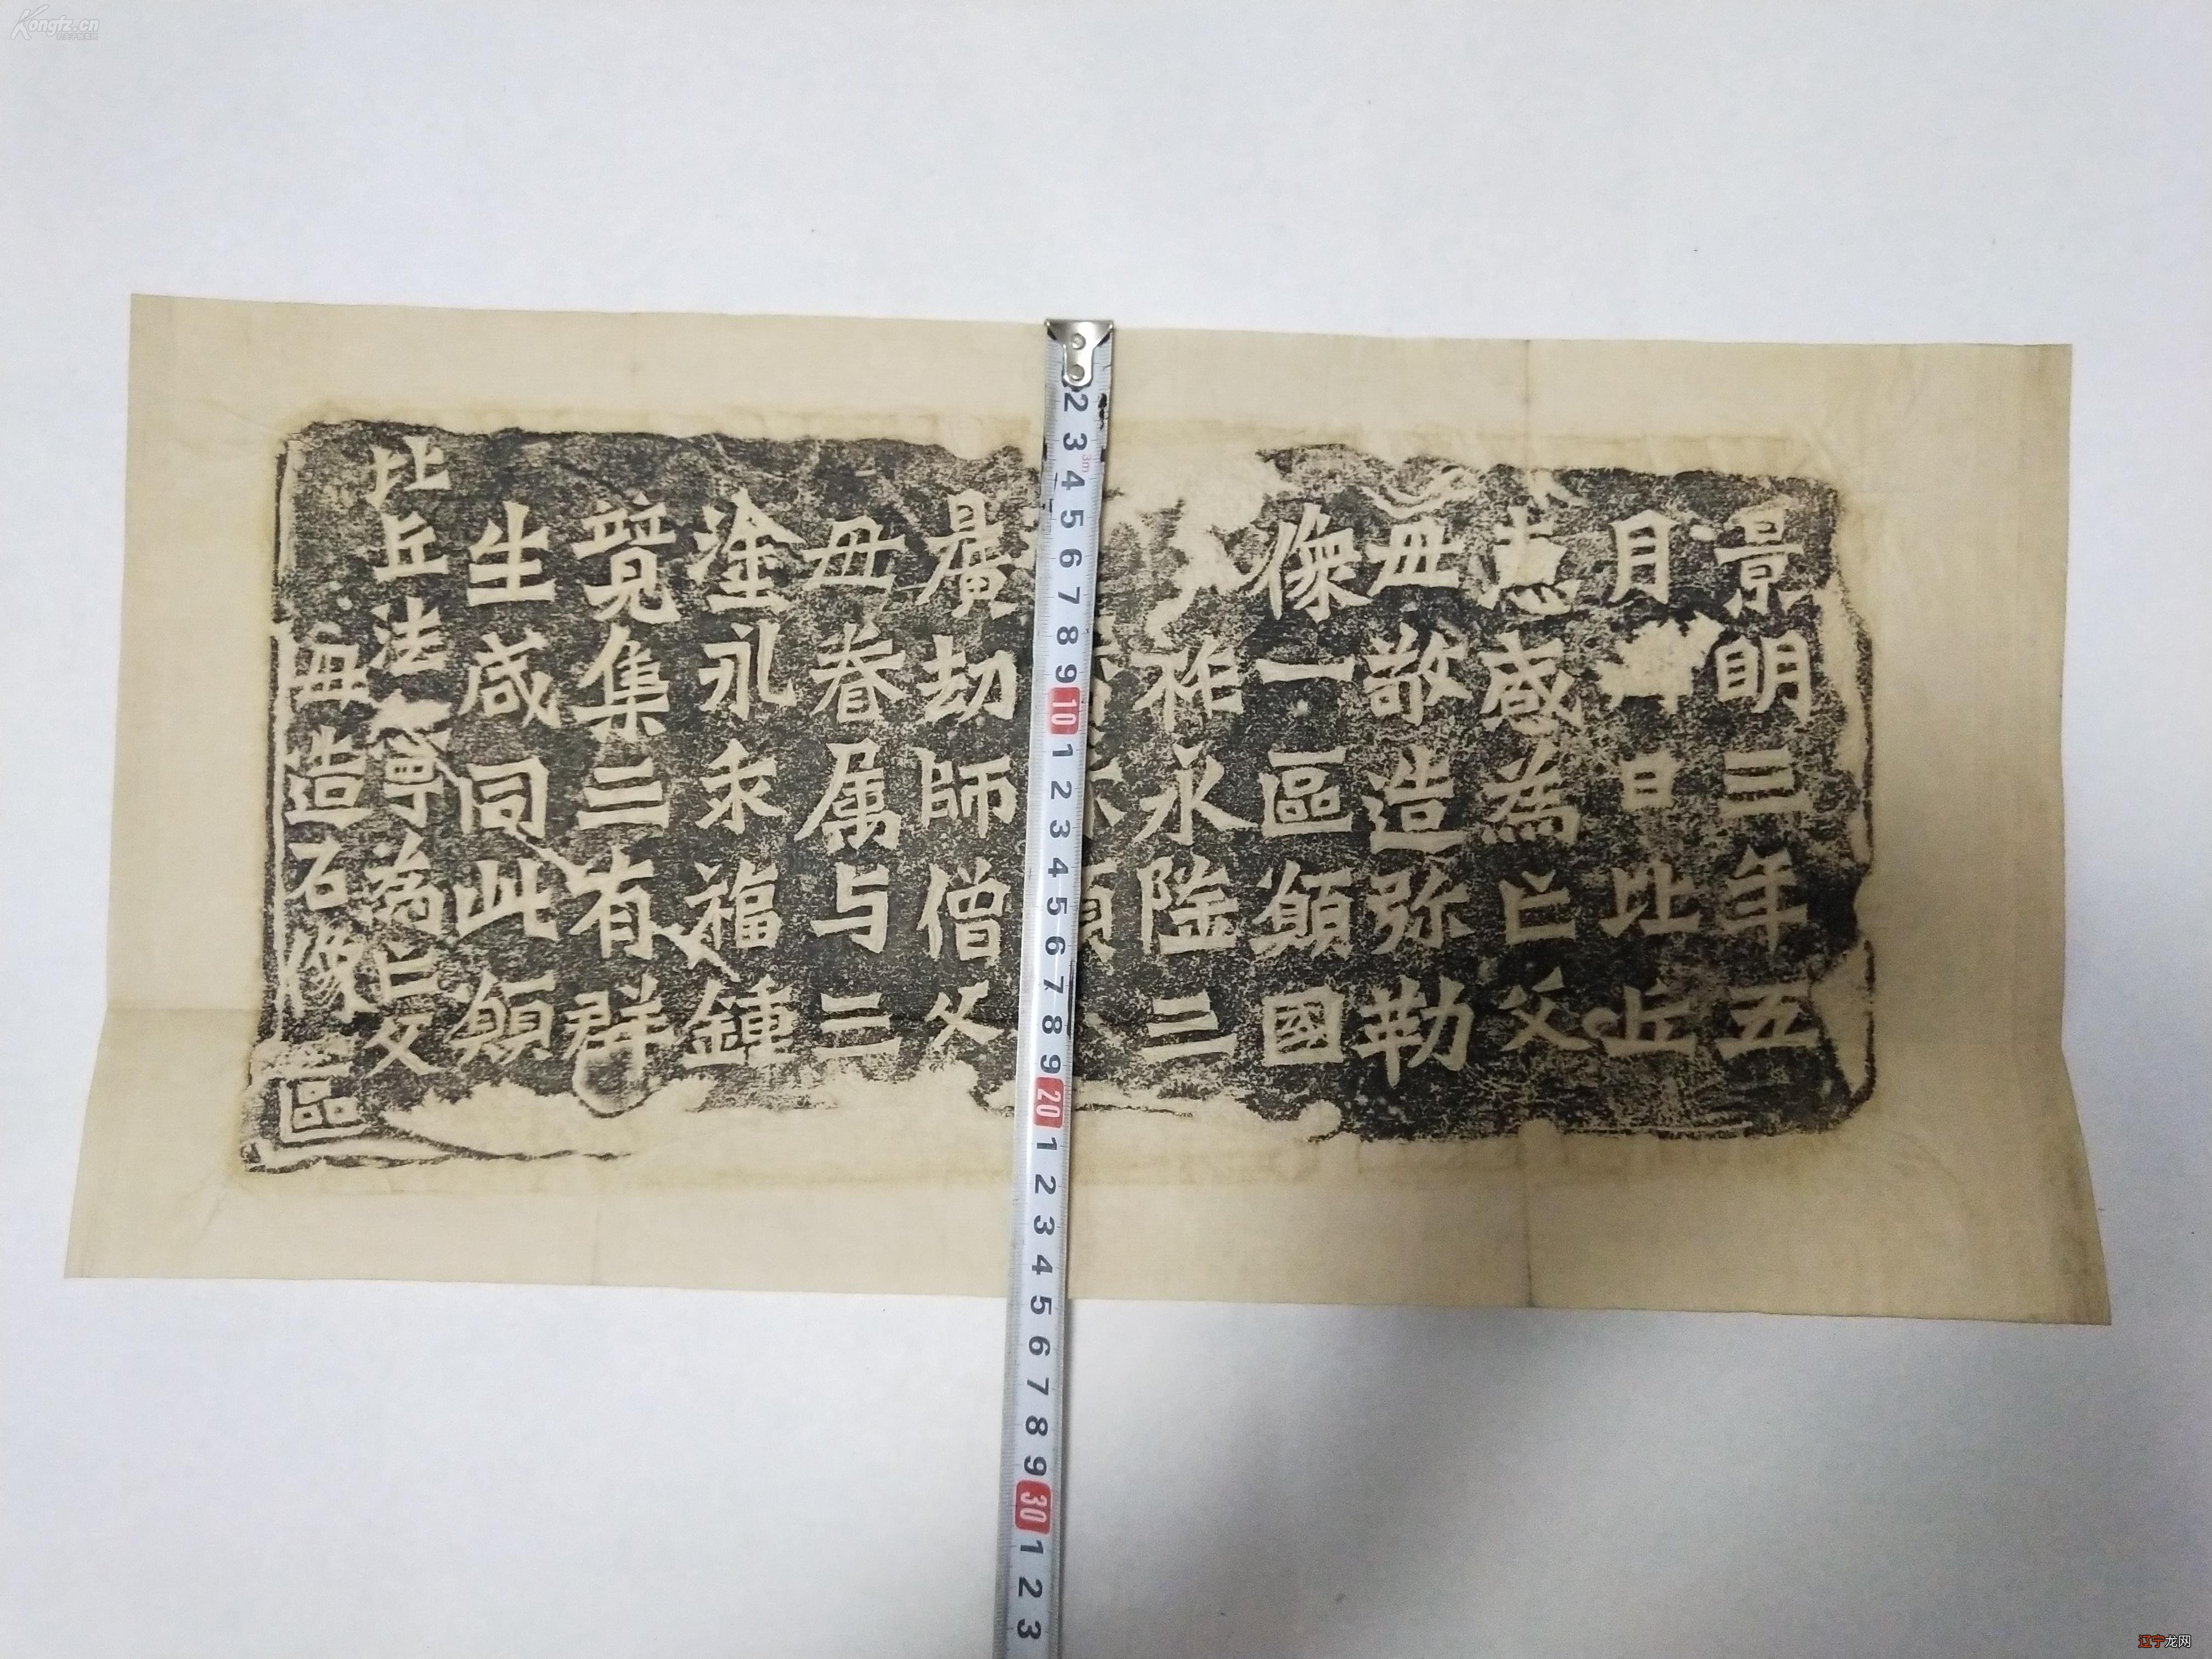 Kongfz.cn
景明三年五
月卅日比丘
惠感為亡父
母敬造弥勒
像一區願國
祚永隆三
曠劫師僧父
母眷属与三
塗永乖福鍾
竟集三有群
生咸同此願
比丘法寧為亡父
母造石像區
2 3 4 5 6 7 8 9 10 1 2 3 4 5 6 7 8 9 20 1 2 3 4 5 6 7 8 9 30 1 2 3
3m
辽宁龙网